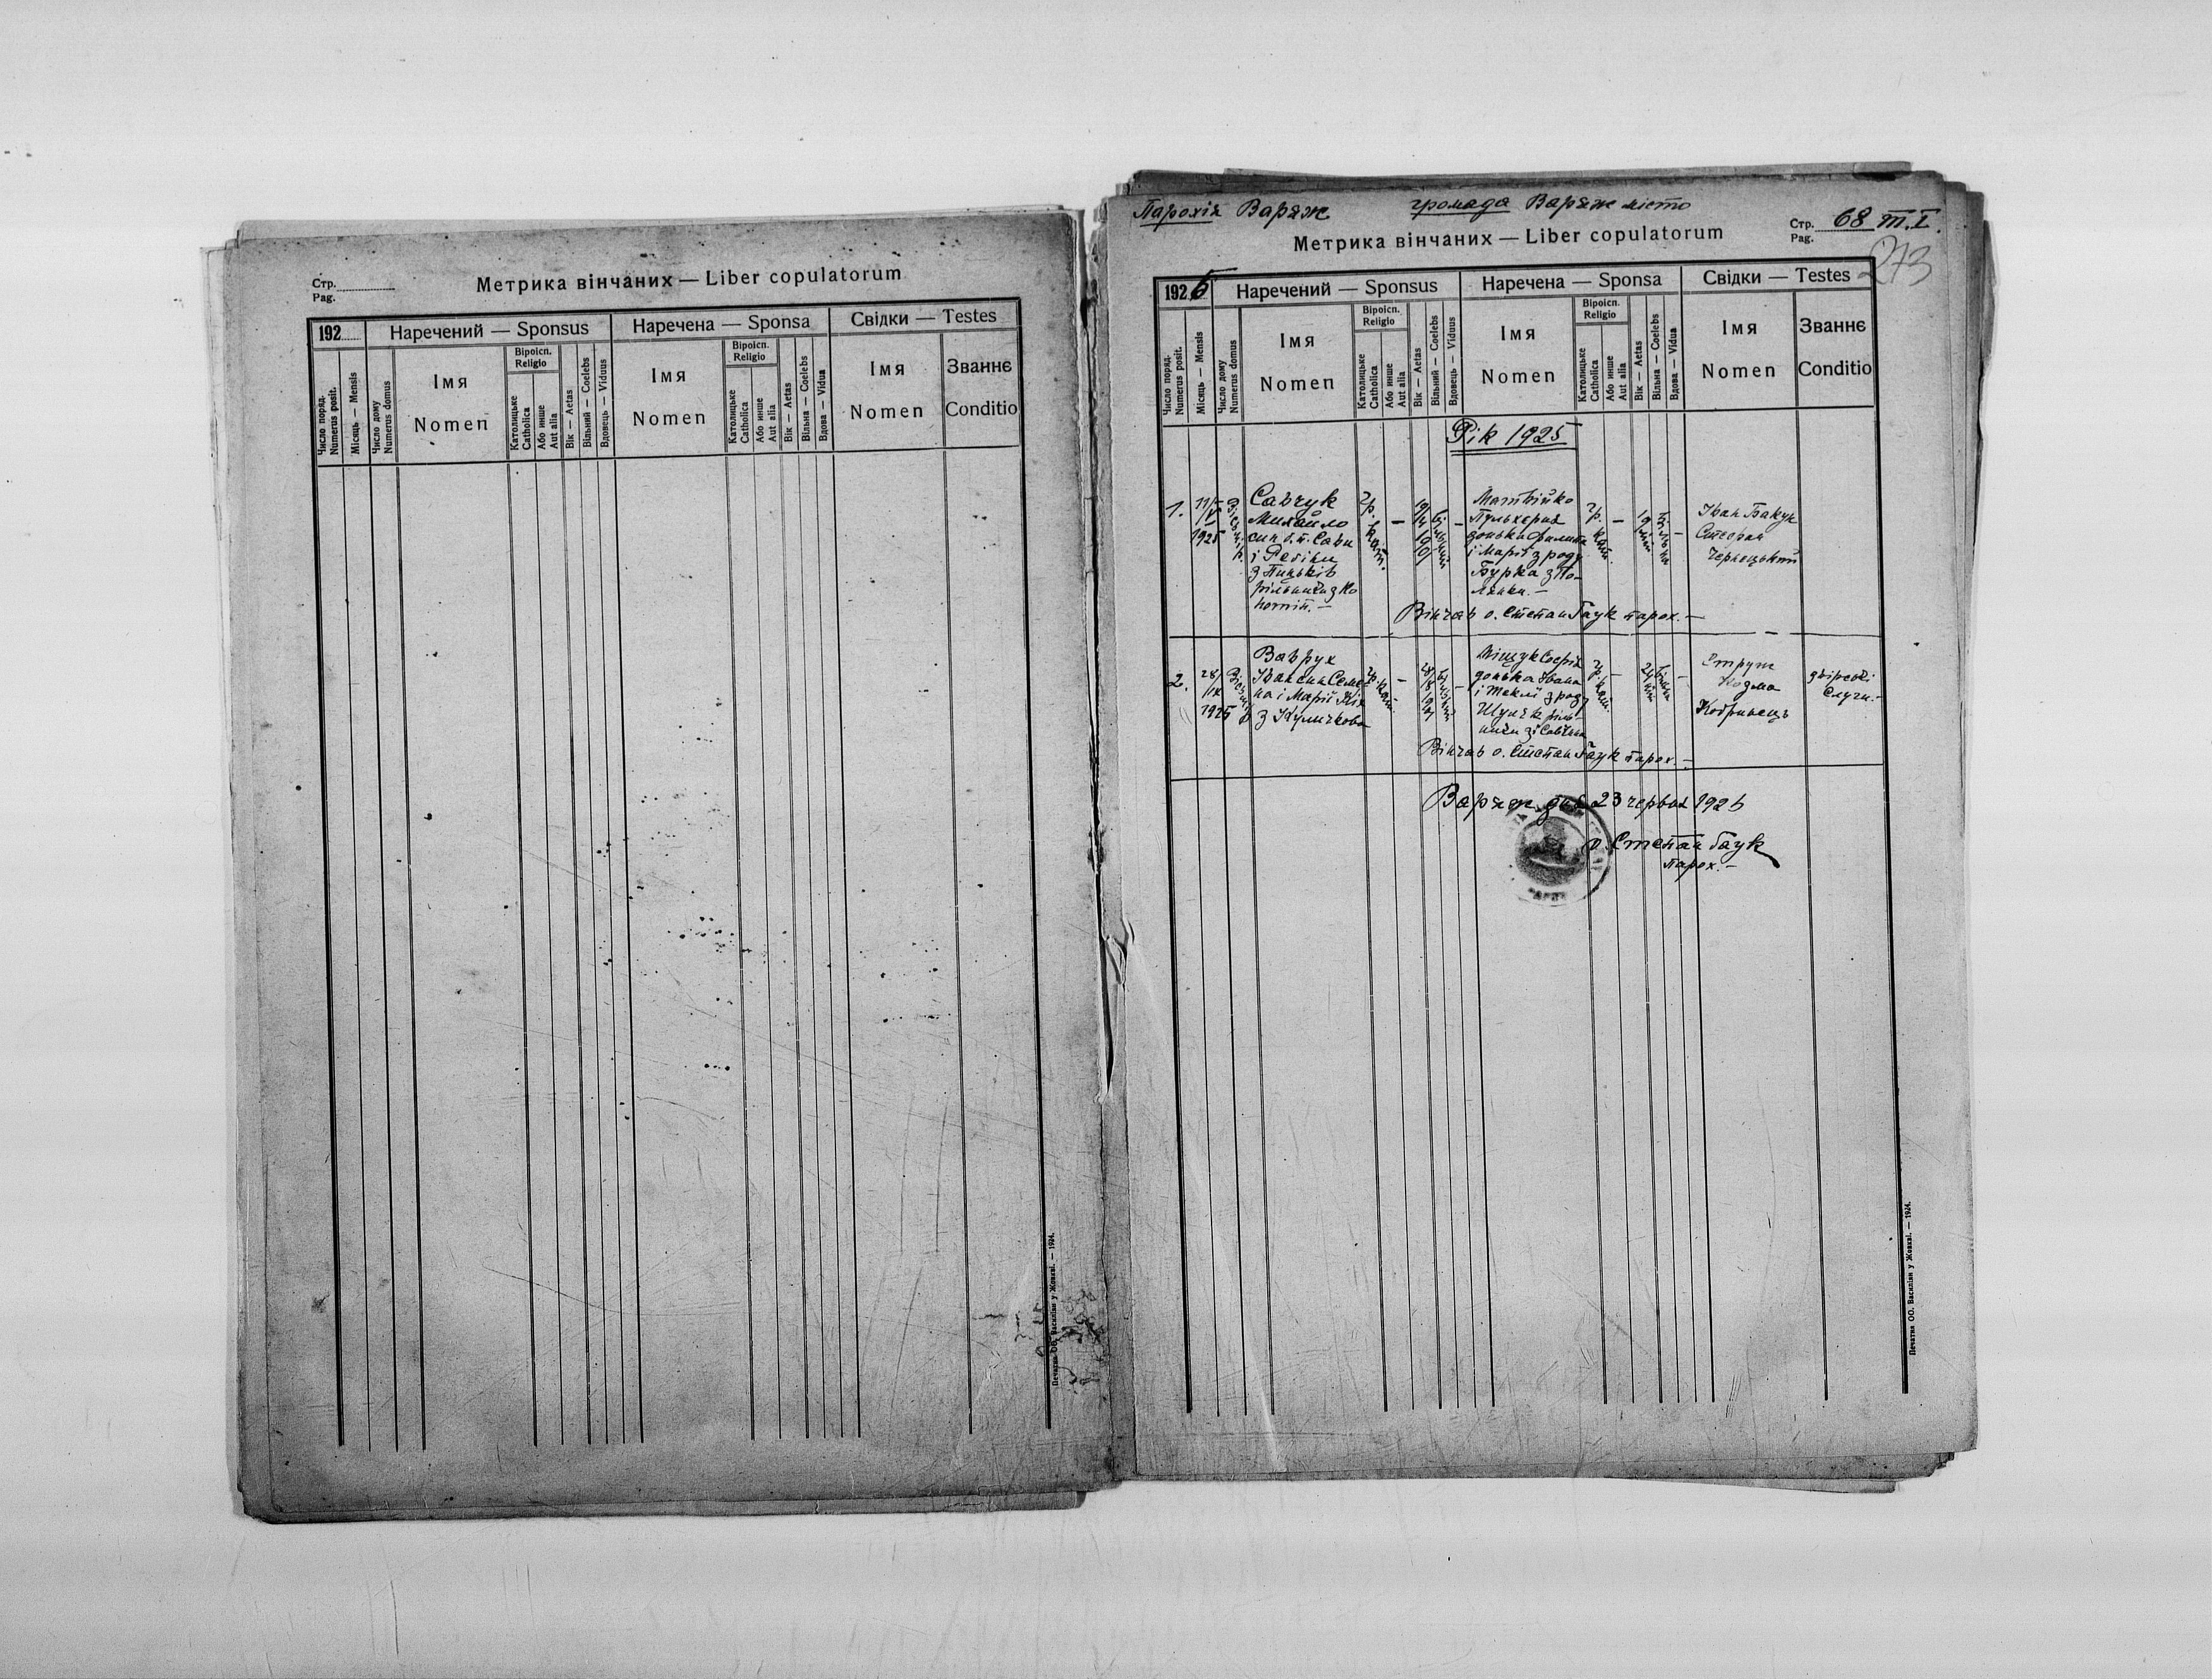 Стр.
Pag.
Метрика вінчаних — Liber copulatorum
192
Наречений — Sponsus
Наречена — Sponsa
Свідки — Testes
Число поряд.
Numerus posit.
Місяць — Mensis
Число дому
Numerus domus
Імя
Nomen
Віроісп.
Religio
Католицьке
Catholica
Або инше
Aut alia
Вік — Aetas
Вільний — Coelebs
Вдовець — Viduus
Імя
Nomen
Віроісп.
Religio
Католицьке
Catholica
Або инше
Aut alia
Вік — Aetas
Вільна — Coelebs
Вдова — Vidua
Імя
Nomen
Званнє
Conditio
Печатня ОО. Василіян у Жовкві. — 1924.
Парохія Варяж громада Варяж місто
Стр. 68 т. I.
Pag.
273
Метрика вінчаних — Liber copulatorum
192
Наречений — Sponsus
Наречена — Sponsa
Свідки — Testes
Число поряд.
Numerus posit.
Місяць — Mensis
Число дому
Numerus domus
Імя
Nomen
Віроісп.
Religio
Католицьке
Catholica
Або инше
Aut alia
Вік — Aetas
Вільний — Coelebs
Вдовець — Viduus
Імя
Nomen
Віроісп.
Religio
Католицьке
Catholica
Або инше
Aut alia
Вік — Aetas
Вільна — Coelebs
Вдова — Vidua
Імя
Nomen
Званнє
Conditio
Рік 1925
1.
1925
Савчук
Михайло
син
з
гр.
кат.
Матвійко
Пулхерия
донька
і Марії з роду
Бурка з По-
гр.
кат.
Іван Бакун
Стефан
Чернецький
Вінчав о. Степан Гаук парох. —
2.
28/
IX
1925
Ваврух
Іван син Семе-
на і Марії
з Куличкова
гр. кат.
Міщук Софія
донька Івана
і Теклі з роду
гр.
кат.
Струт
Козма
Кобринець
двірські
слуги. —
Вінчав о. Степан Гаук парох. —
Варяж дня 23 червня 1926
о. Степан Гаук
парох. —
Печатня ОО. Василіян у Жовкві. — 1924.